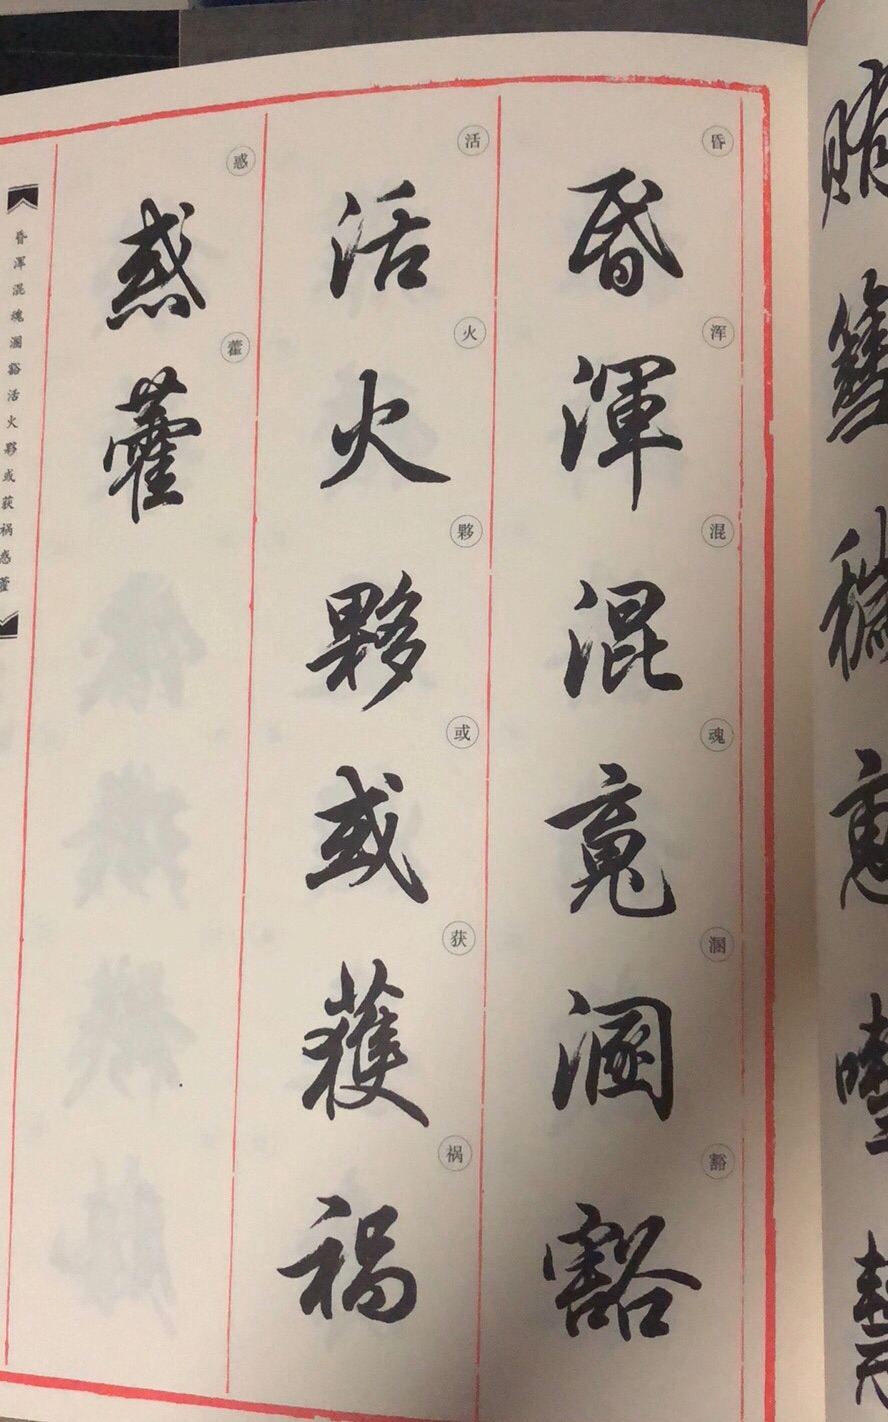 昏 渾 混 魂 溷 豁
昏 浑 混 魂 溷 豁
活 火 夥 或 獲 禍
活 火 夥 或 获 祸
惑 藿
惑 藿
昏 浑 混 魂 溷 豁 活 火 夥 或 获 祸 惑 藿